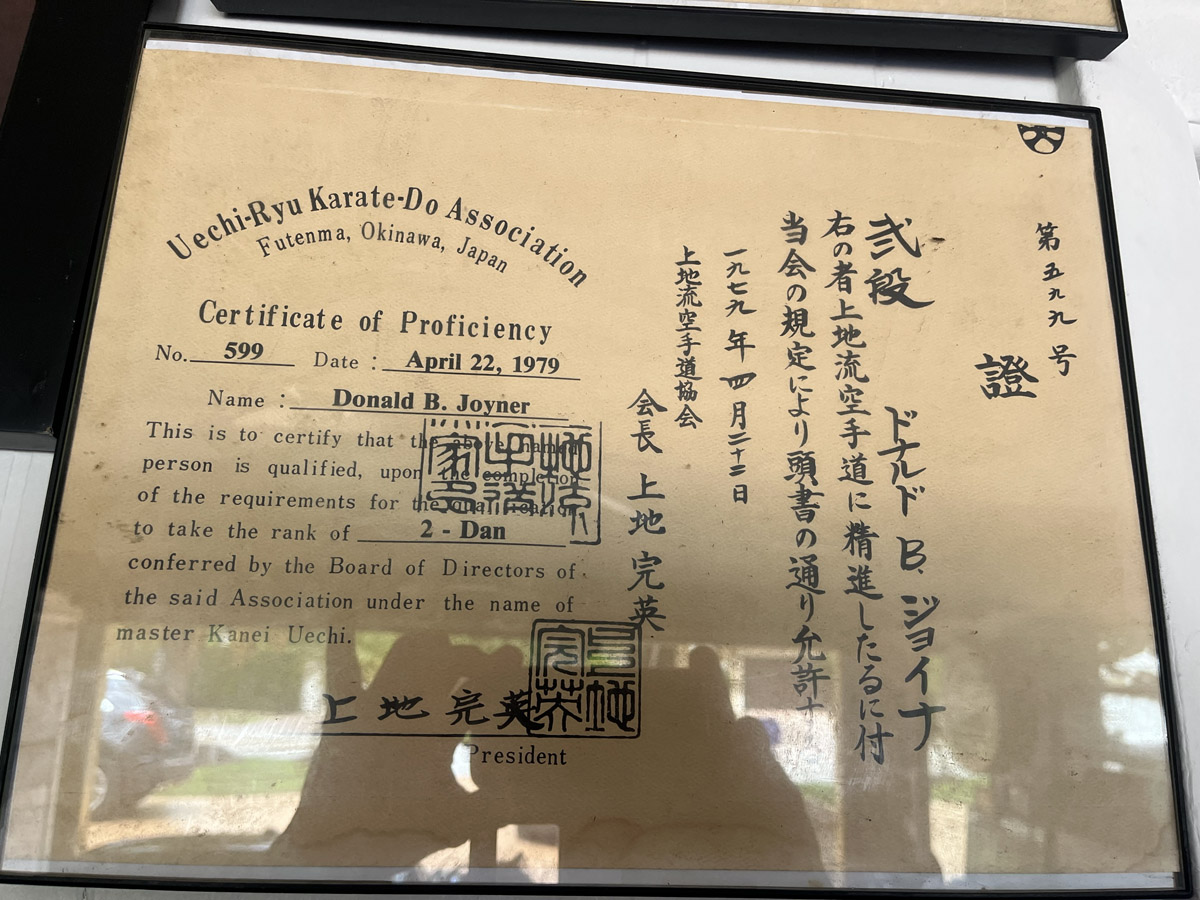 Uechi-Ryu Karate-Do Association
Futenma, Okinawa, Japan
Certificate of Proficiency
No. 599 Date : April 22, 1979
Name : Donald B. Joyner
This is to certify that the above named
person is qualified, upon the completion
of the requirements for the qualification
to take the rank of 2 - Dan
conferred by the Board of Directors of
the said Association under the name of
master Kanei Uechi.
上地完英
President
第五九九号
證
ドナルド B. ジョイナ
弐段
右の者上地流空手道に精進したるに付
当会の規定により頭書の通り允許す
一九七九年四月二十二日
上地流空手道協会
会長 上地完英